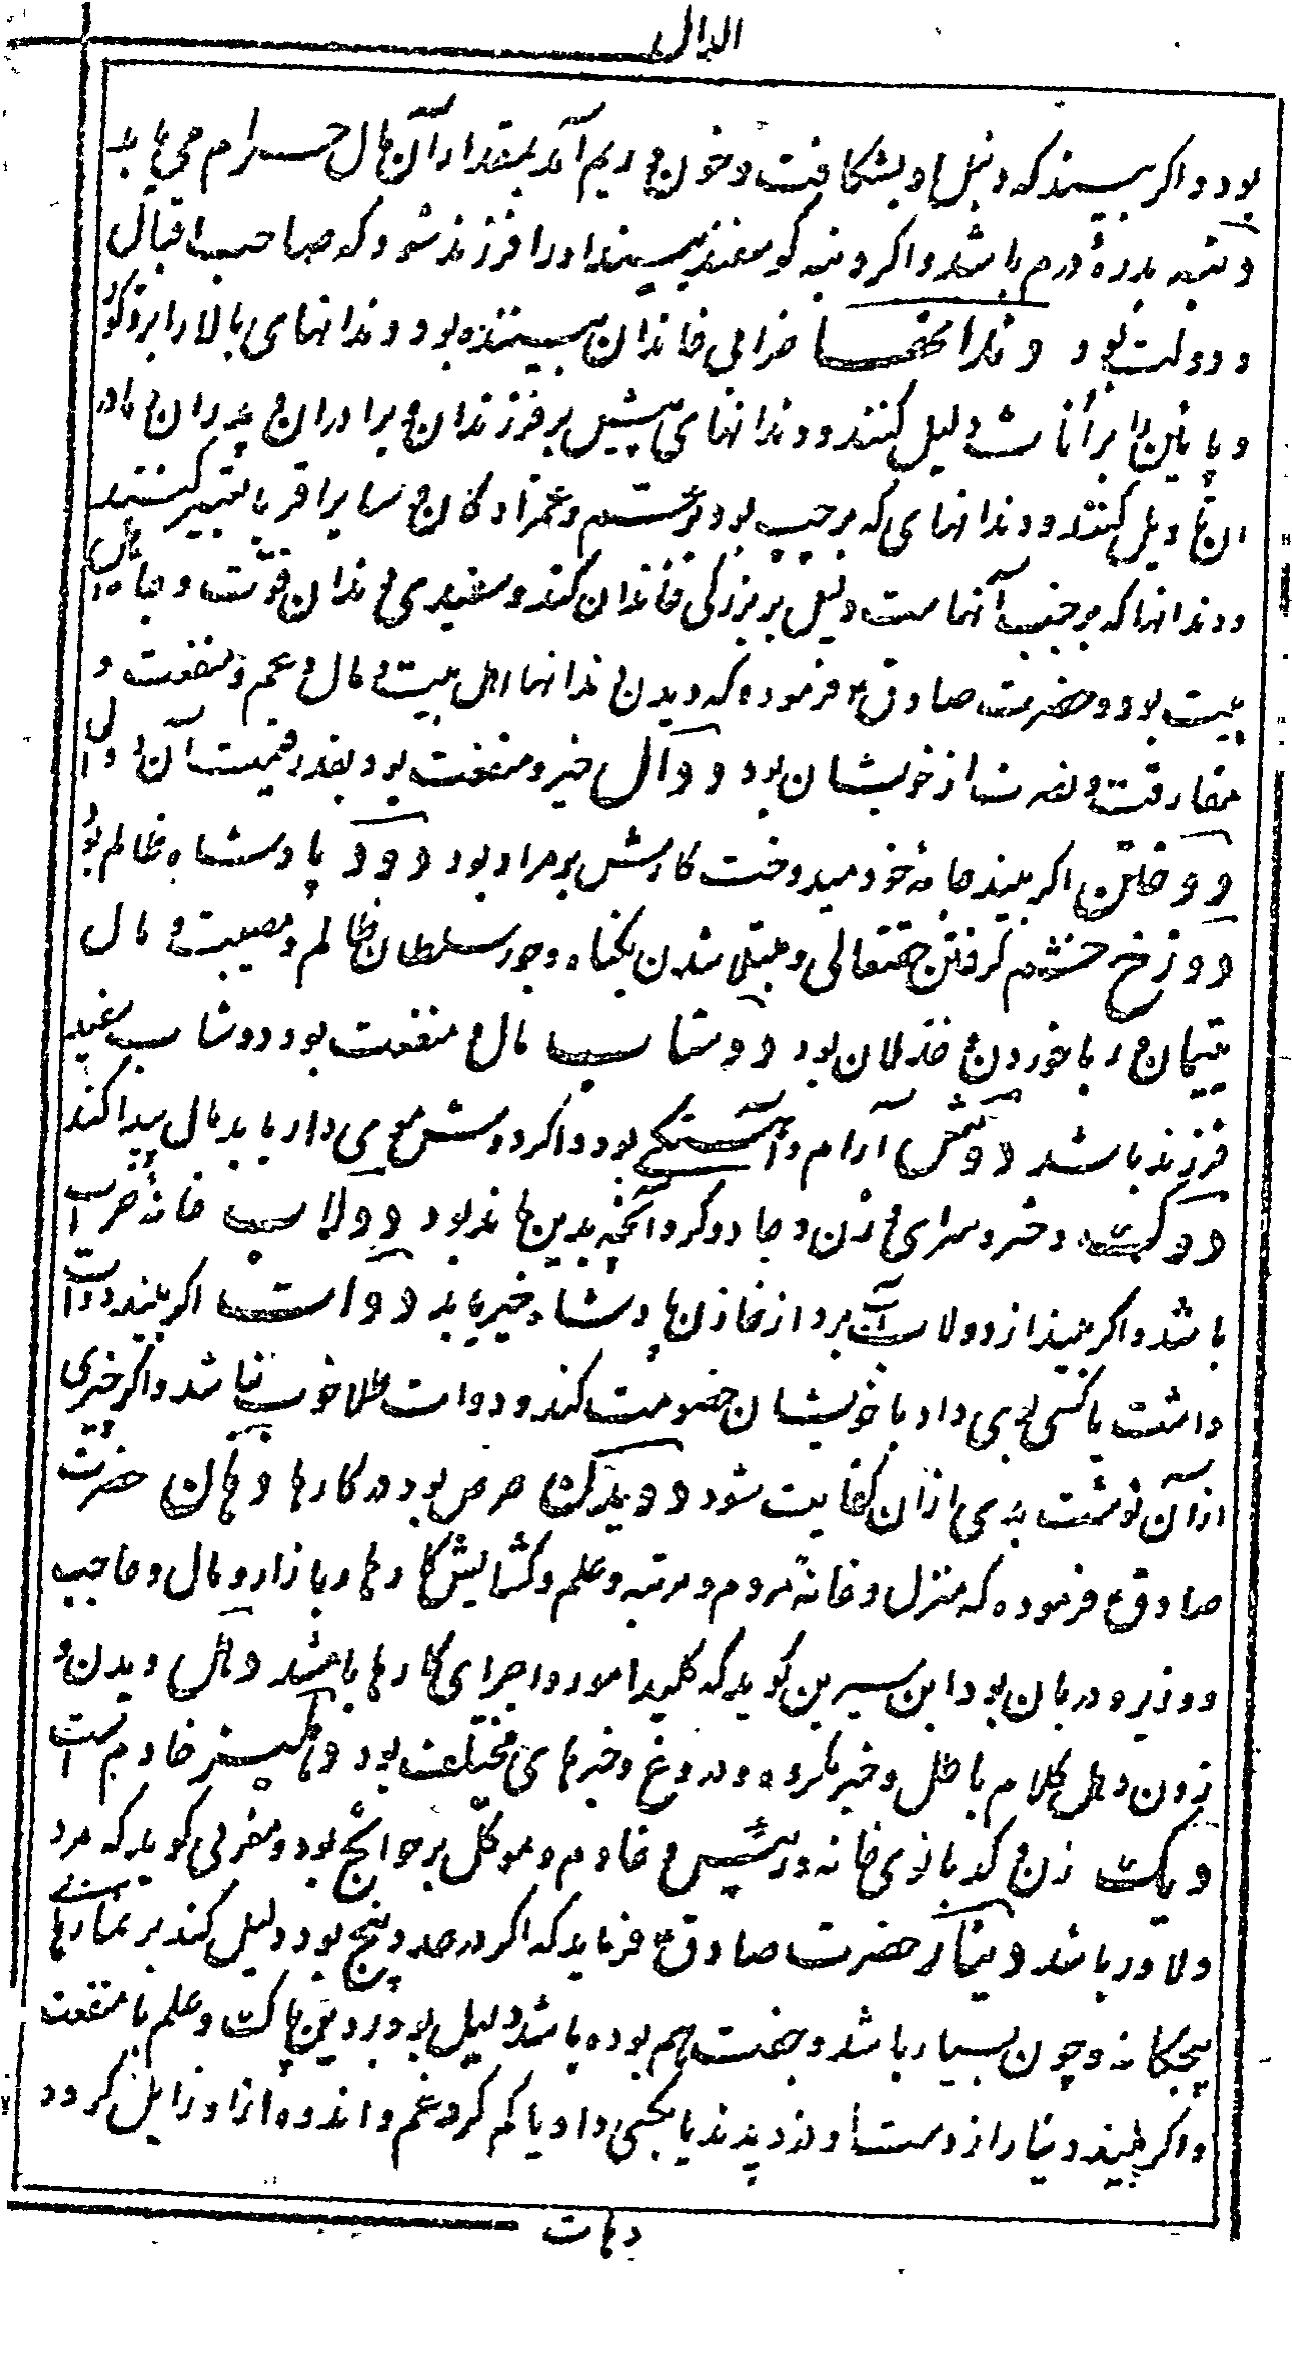 الدال
بود و اکر بیند که دنبل او بشکافت و خون و ریم آمد بمقدار آن مال حرام می یابد
و تتبه بدرهٔ درم باشد و اکر دنبه کوسفند بیند او را فرزند شود که صاحب اقبال
و دولت بود دندانها خرابی خاندان بیننده بود دندانهای بالا را بر ذکور
و پائین را بر اناث دلیل کنند و دندانهای پیش بر فرزندان و برادران و پدران و مادر
ان تاویل کنند و دندانهای که بر چپ بود بر عم و عمزادکان و سایر اقربا تعبیر کنند
و دندانها که بر جنب آنهاست دلیل بر بزرکی خاندان کند و سفیدی دندان قوت و جاه اهل
بیت بود و حضرت صادق ع فرموده که دیدن دندانها اهل بیت و مال و عم و منفعت و
مفارقت و نفرت از خویشان بود دوال خیر و منفعت بود بقدر قیمت آن اولی
دوختن اکر بیند جامهٔ خود میدوخت کارش بر مراد بود دود پادشاه ظالم بود
دوزخ خشم کرفتن حقتعالی و مبتلا شدن بکناه و جور سلطان ظالم و مصیبت و مال
یتیمان و ربا خوردن و خذلان بود دوشاب مال و منفعت بود دوشاب سفید
فرزند باشد دوش آرام و آهستکی بود و اکر دوشش موی دار یابد مال پیدا کند
دوک دختر و سرای و زن و جادوکر و آنچه بدین ماند بود دولاب خانهٔ خراب
باشد و اکر بیند از دولاب آب برد از خازن پادشاه خیر یابد دوات اکر بیند دوات
داشت یا کسی بوی داد با خویشان خصومت کند و دوات طلا خوب نباشد و اکر چیزی
از آن نوشت بدی از آن کفایت شود دویدن حرص بود در کارها دهان حضرت
صادق ع فرموده که منزل و خانهٔ مردم و مرتبه و علم و کشایش کارها و بازار و مال و حاجب
و وزیر و دربان بود ابن سیرین کوید که کلید امور و اجرای کارها باشد دهل دیدن و
زدن دهل کلام باطل و خبر مکروه و دروغ و خبرهای مختلف بود دهلیز خادم است
دیک زن و کدبانوی خانه و رئیس و خادم و موکل بر حوائج بود و مغربی کوید که مرد
دلاور باشد دینار حضرت صادق ع فرماید که اکر در صد و پنج بود دلیل کند بر نمازهای
پنجکانه و چون بسیار باشد و جفت هم بوده باشد دلیل بود بر دین پاک و علم با منفعت
و اکر بیند دینار از دست او دزدیدند یا بکسی داد یا کم کرد غم و اندوه از او زایل کردد
دهات